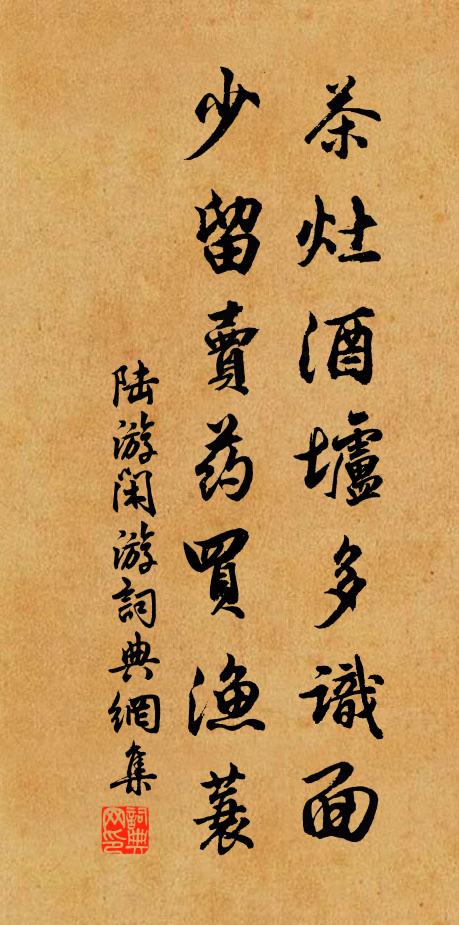 茶灶酒壚多識面
少留賣药買漁蓑
陆游閑游詞典網集
詞典网印